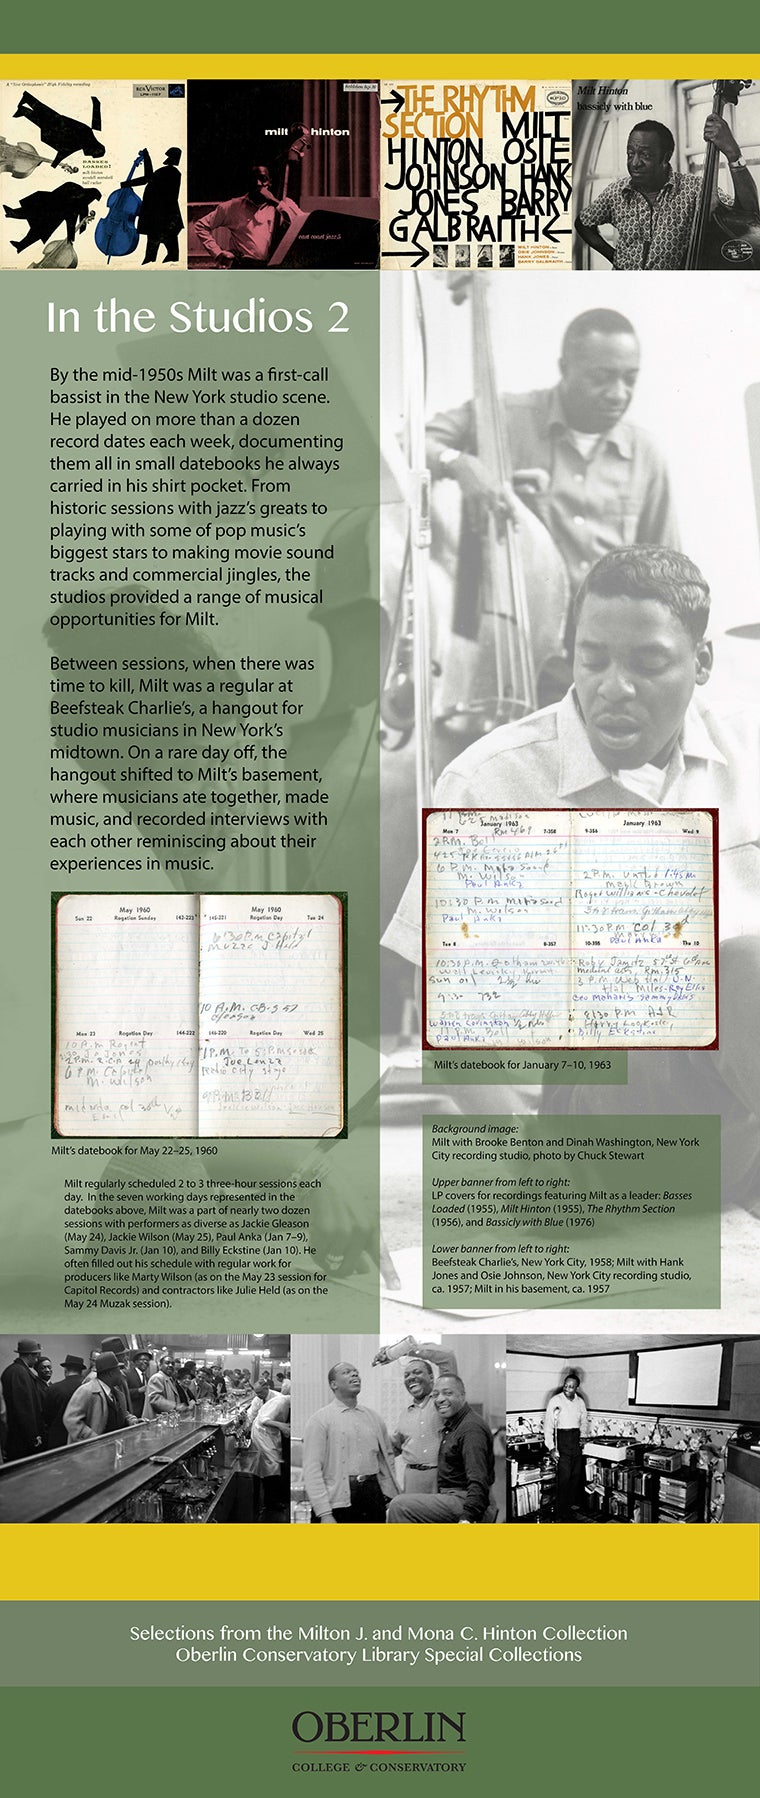 A "New Orthophonic" High Fidelity recording
RCA VICTOR
BASSES
LOADED!
milt hinton
milt hinton
east coast jazz/5
THE RHYTHM
SECTION MILT
HINTON OSIE
JOHNSON HANK
JONES BARRY
GALBRAITH
EPIC
MILT HINTON
OSIE JOHNSON
HANK JONES
BARRY GALBRAITH
Milt Hinton
bassicly with blue
In the Studios 2
By the mid-1950s Milt was a first-call
bassist in the New York studio scene.
He played on more than a dozen
record dates each week, documenting
them all in small datebooks he always
carried in his shirt pocket. From
historic sessions with jazz's greats to
playing with some of pop music's
biggest stars to making movie sound
tracks and commercial jingles, the
studios provided a range of musical
opportunities for Milt.
Between sessions, when there was
time to kill, Milt was a regular at
Beefsteak Charlie's, a hangout for
studio musicians in New York's
midtown. On a rare day off, the
hangout shifted to Milt's basement,
where musicians ate together, made
music, and recorded interviews with
each other reminiscing about their
experiences in music.
May 1960
Sun 22 Rogation Sunday 143-223
May 1960
145-221 Rogation Day Tue 24
6:30 P.m Capitol
Muzac J. Held
10 A.M. CBS 57
Gleason
Mon 23 Rogation Day 144-222
10 A.m Regent
6 P.m Capitol
M. Wilson
146-220 Rogation Day Wed 25
Radio City stage
9 P.M. Bell
Milt's datebook for May 22–25, 1960
Milt regularly scheduled 2 to 3 three-hour sessions each
day. In the seven working days represented in the
datebooks above, Milt was a part of nearly two dozen
sessions with performers as diverse as Jackie Gleason
(May 24), Jackie Wilson (May 25), Paul Anka (Jan 7–9),
Sammy Davis Jr. (Jan 10), and Billy Eckstine (Jan 10). He
often filled out his schedule with regular work for
producers like Marty Wilson (as on the May 23 session for
Capitol Records) and contractors like Julie Held (as on the
May 24 Muzak session).
January 1963
Mon 7 Rm 469 7-358
2 P.M. Bell
6 P.m. Mira Sound
M. Wilson
Paul Anka
10:30 P.m Mira Sound
M. Wilson
Paul Anka
January 1963
9-356 Wed 9
2 P.M. United 1:45 Mu
Mark Brown
Roger Williams - Chevrolet
11:30 P.M Col 30
Paul Anka
Tue 8 8-357
11 P.M. Bell
Paul Anka
10-355 Thu 10
Medical Cen. Rm. 315
8:30 P.M A+R
Billy Eckstine
Milt's datebook for January 7–10, 1963
Background image:
Milt with Brooke Benton and Dinah Washington, New York
City recording studio, photo by Chuck Stewart
Upper banner from left to right:
LP covers for recordings featuring Milt as a leader: Basses
Loaded (1955), Milt Hinton (1955), The Rhythm Section
(1956), and Bassicly with Blue (1976)
Lower banner from left to right:
Beefsteak Charlie's, New York City, 1958; Milt with Hank
Jones and Osie Johnson, New York City recording studio,
ca. 1957; Milt in his basement, ca. 1957
Selections from the Milton J. and Mona C. Hinton Collection
Oberlin Conservatory Library Special Collections
OBERLIN
COLLEGE & CONSERVATORY